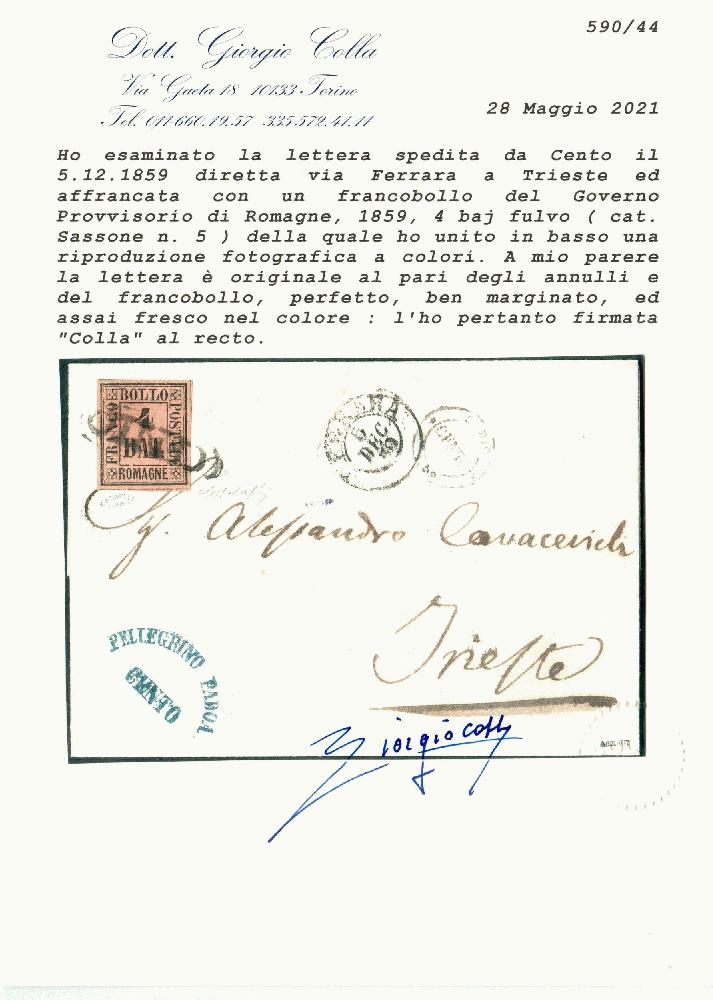 590/44
Dott. Giorgio Colla
Via Gaeta 18 10133 Torino
Tel. 011.660.19.57 335.572.41.11
28 Maggio 2021
Ho esaminato la lettera spedita da Cento il
5.12.1859 diretta via Ferrara a Trieste ed
affrancata con un francobollo del Governo
Provvisorio di Romagne, 1859, 4 baj fulvo ( cat.
Sassone n. 5 ) della quale ho unito in basso una
riproduzione fotografica a colori. A mio parere
la lettera è originale al pari degli annulli e
del francobollo, perfetto, ben marginato, ed
assai fresco nel colore : l'ho pertanto firmata
"Colla" al recto.
BOLLO
FRANCO
POSTALE
4
BAI
ROMAGNE
FERRARA
6
DIC
59
CENTO
Sg. Alessandro
Trieste
PELLEGRINO PADOA
CENTO
Giorgio Colla